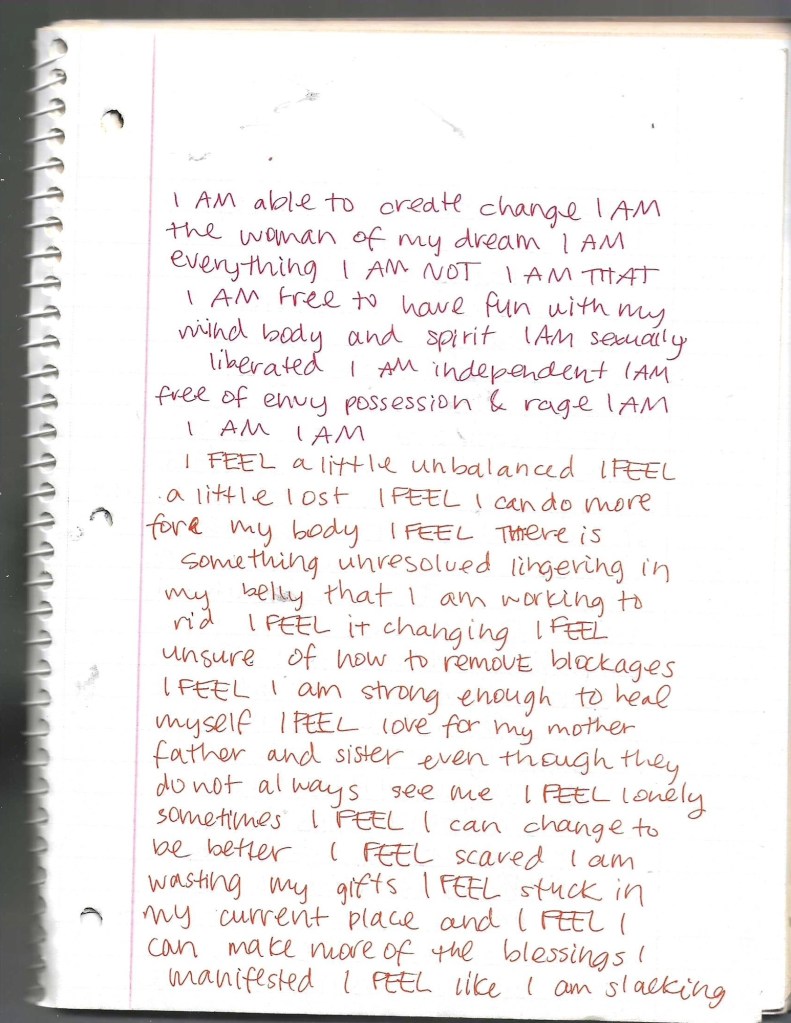 I AM able to create change I AM
the woman of my dream I AM
everything I AM NOT I AM THAT
I AM free to have fun with my
mind body and spirit I AM sexually
liberated I AM independent I AM
free of envy possession & rage I AM
I AM I AM
I FEEL a little unbalanced I FEEL
a little lost I FEEL I can do more
fore my body I FEEL There is
something unresolved lingering in
my belly that I am working to
rid I FEEL it changing I FEEL
unsure of how to remove blockages
I FEEL I am strong enough to heal
myself I FEEL love for my mother
father and sister even though they
do not always see me I FEEL lonely
sometimes I FEEL I can change to
be better I FEEL scared I am
wasting my gifts I FEEL stuck in
my current place and I FEEL I
can make more of the blessings I
manifested I FEEL like I am slacking